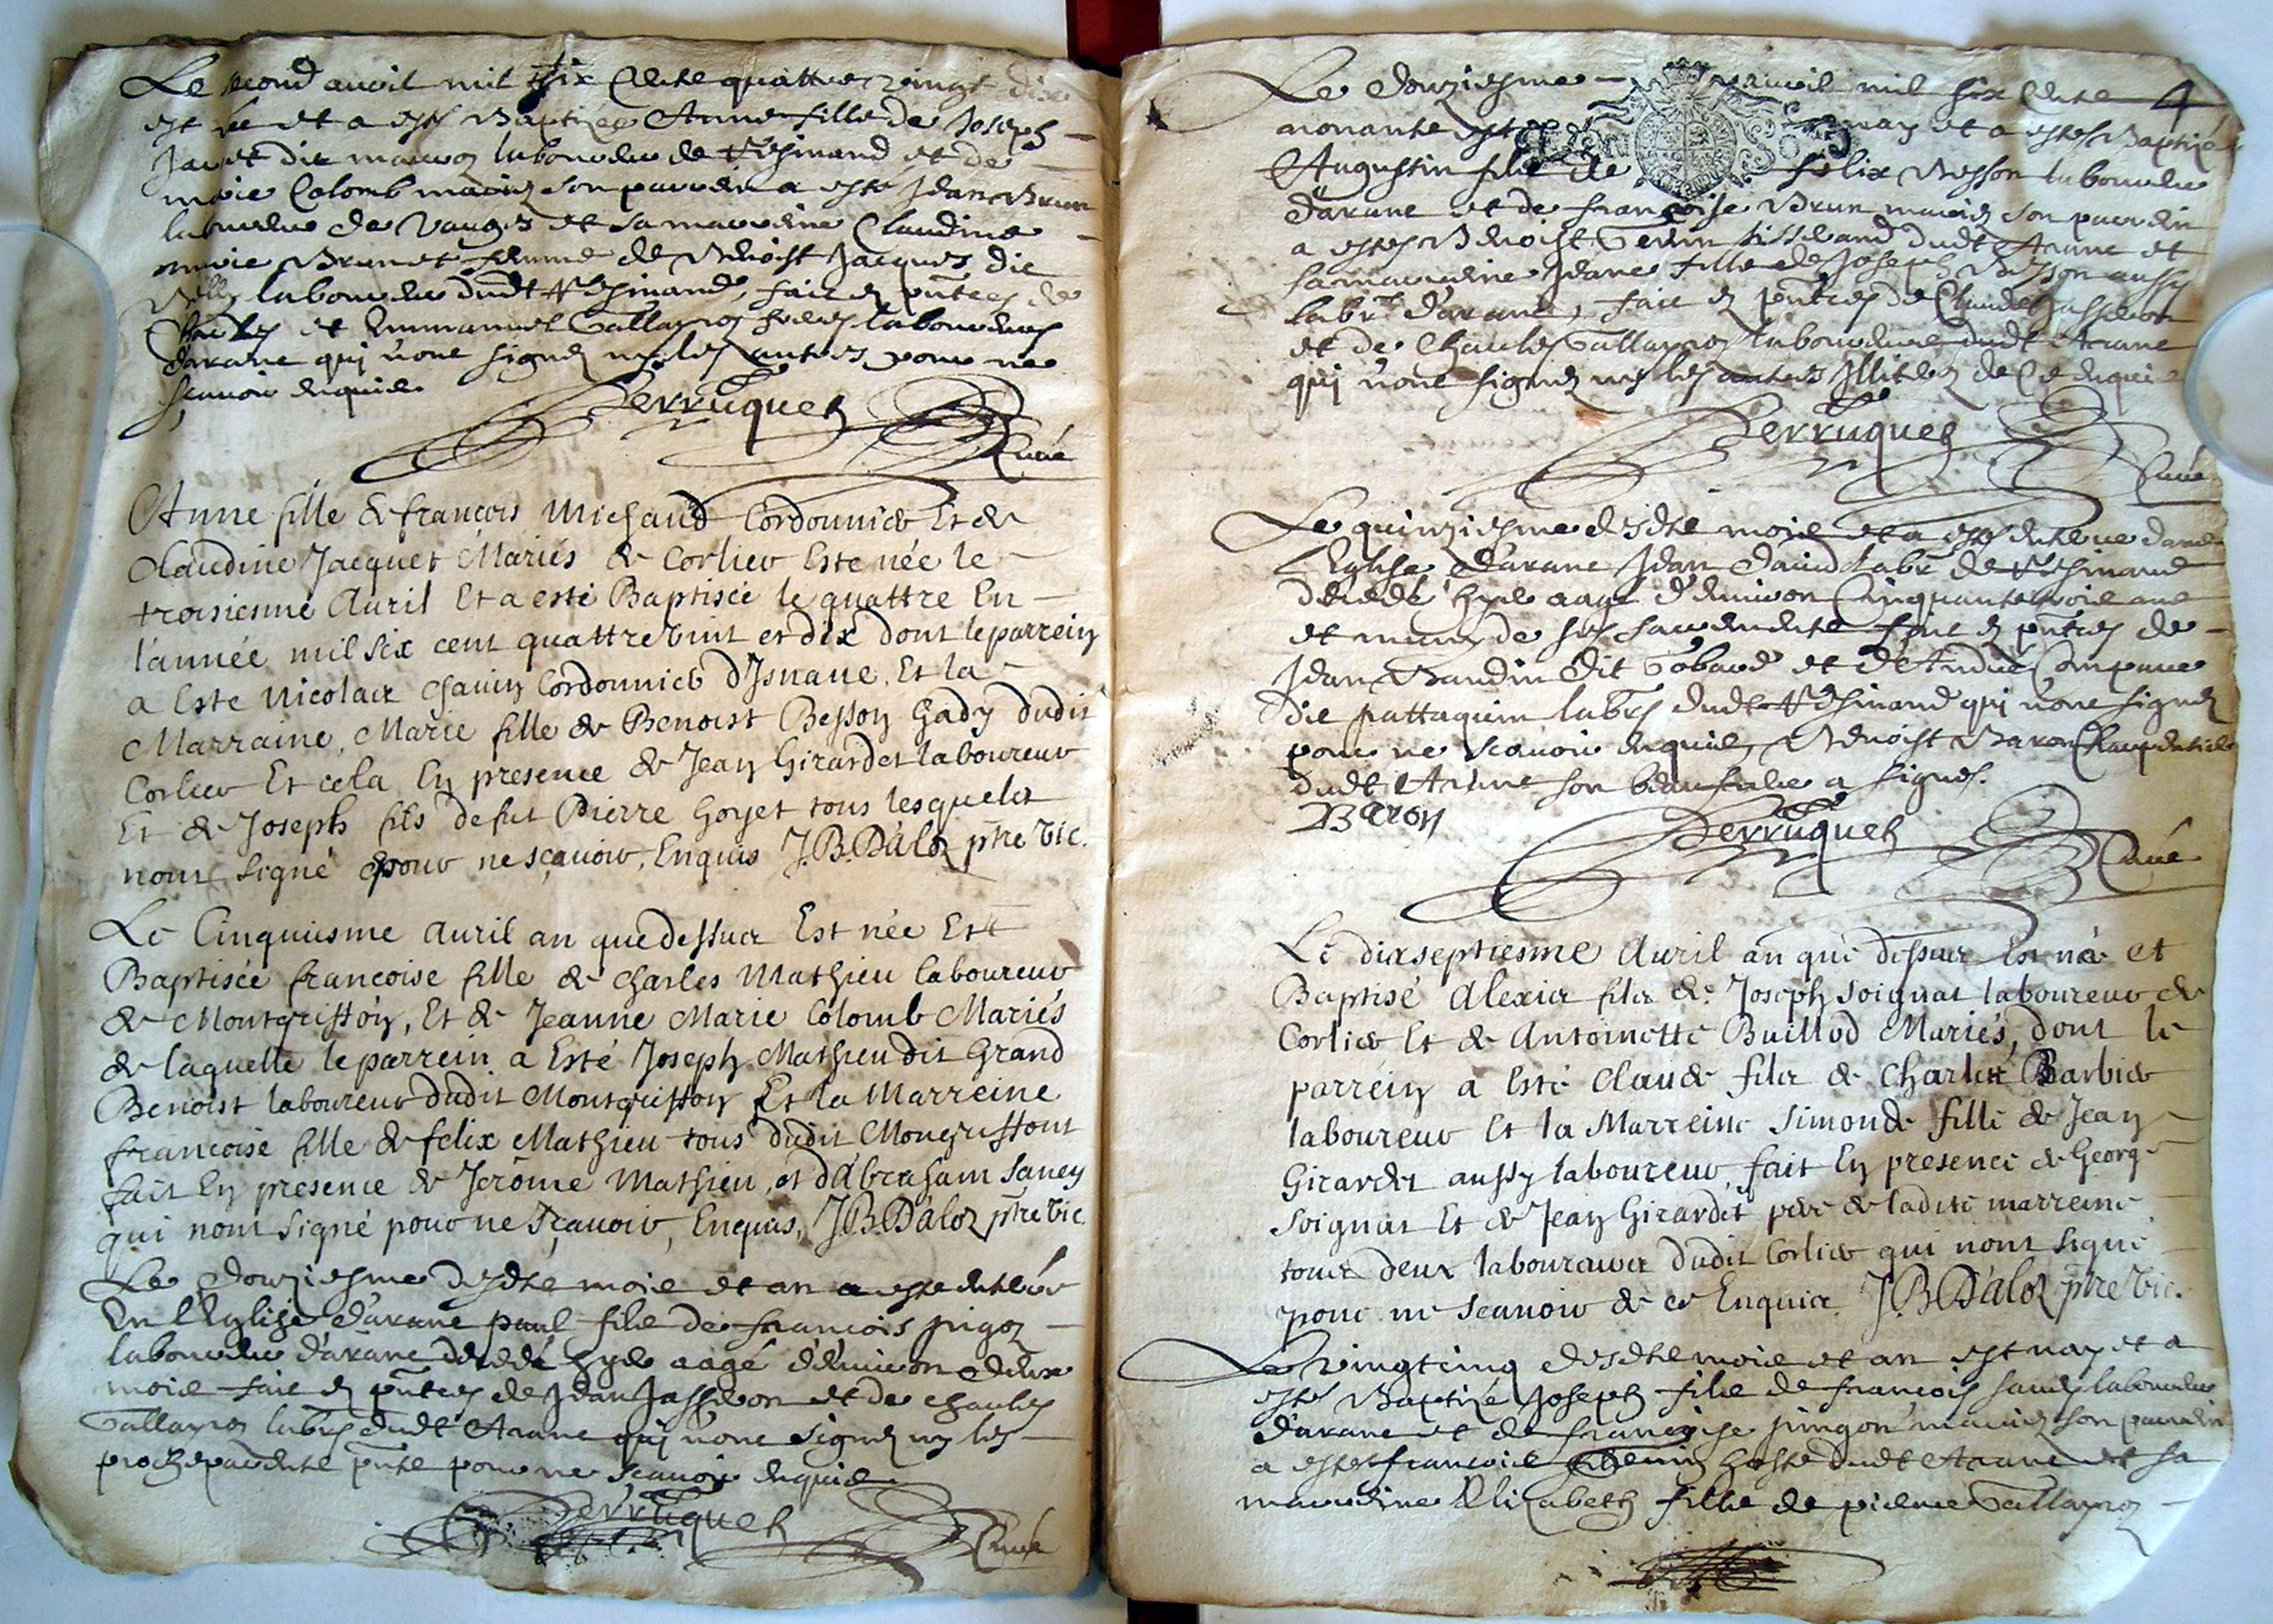 Le second avril mil six cents quattre vingt dix
est née et a esté Baptizée Anne fille de Joseph
Javet dit laboureur de Resinand et de
marie Colomb mariez son parrein a esté Jean Brun
laboureur de et sa marreine Claudine
marie Brunet femme de Benoist Jacques dit
laboureur dudt Resinand, fait en pntces de
Charles et Emmanuel Tallapioz freres laboureurs
d'arane qui n'ont signez ny les autres pour ne
scavoir enquis
Perruquet
Curé
Anne fille de francois Michaud Cordonnier Et de
Claudine Jacquet Mariés de Corlier Este née le
troisiesme Auril Et a esté Baptisée le quattre En
l'année mil six cent quattrevint et dix dont le parrein
a Esté Nicolas Chauin Cordonnier d'Isnaue. Et la
Marraine, Marie fille de Benoist Besson Gady dudit
Corlier Et cela En presence de Jean Girardet laboureur
Et de Joseph fils defut Pierre Goyet tous lesquels
nont signé pour ne sçauoir, Enquis J.B.D'aloz ptre Vic.
Le Cinquiesme Auril an que dessus Est née Et
Baptisée francoise fille de Charles Mathieu laboureur
de Montgriffon, Et de Jeanne Marie Colomb Mariés
de laquelle le parrein a Esté Joseph Mathieu dit Grand
Benoist laboureur dudit Montgriffon Et la Marreine
francoise fille de felix Mathieu tous dudit Mongriffont
fait En presence de Jerôme Mathieu, et d'Abraham Saney
qui nont signé pour ne sçauoir, Enquis, J.B.D'aloz ptre Vic.
Le douziesme desdts mois et an a esté enterré
En l'Eglise d'arane paul fils de francois pigoz
laboureur d'arane decedé hyer aagé d'environ deux
mois fait en pntces de Jean Jasseron et de charles
Tallapioz labrs dudt Arane qui n'ont signez ny les
proches parents pnts pour ne scavoir enquis
Perruquet
Curé
4
Le douziesme avril mil six cents
nonante est nay et a esté Baptizé
Augustin fils de felix Besson laboureur
d'arane et de francoise Brun mariez son parrein
a esté Benoist tisserand dudt Arane et
sa marreine Jeane fille de Joseph Besson aussy
labr d'arane, fait en pntces de Claude Jasseron
et de Charles Tallapioz laboureurs dudt Arane
qui n'ont signez ny les autres Illitrez de ce enquis
Perruquet
Curé
Le quinziesme desdts mois et a esté enterré dans
l'Eglise d'arane Jean David labr de Resinand
decedé hyer aagé d'environ Cinquante trois ans
et muny de ses sacrements fait en pntces de
Jean Baudin dit et d'André Compare
dit pattaquin labrs dudt Resinand qui n'ont signez
pour ne scavoir enquis, Benoist Baron Charpentier
dudt Arane son beaufrere a signé.
Baron
Perruquet
Curé
Le dixseptiesme Auril an que dessus Est né et
Baptisé Alexis fils de Joseph Soignat laboureur de
Corlier Et de Antoinette Buillod Mariés, dont le
parrein a Esté Claude fils de Charles Barbier
laboureur Et la Marreine Simonde fille de Jean
Girardet aussy laboureur, fait En presence de George
Soignat Et de Jean Girardet pere de ladite marreine
tous deux laboureurs dudit Corlier qui nont signé
pour ne scauoir de ce Enquis J.B.D'aloz ptre Vic.
Le vingtcinq desdts mois et an est nay et a
esté Baptizé Joseph fils de francois Saney laboureur
d'arane et de francoise pingon mariez son parrein
a esté francois hoste dudt Arane et sa
marreine Elizabeth fille de pierre Tallapioz